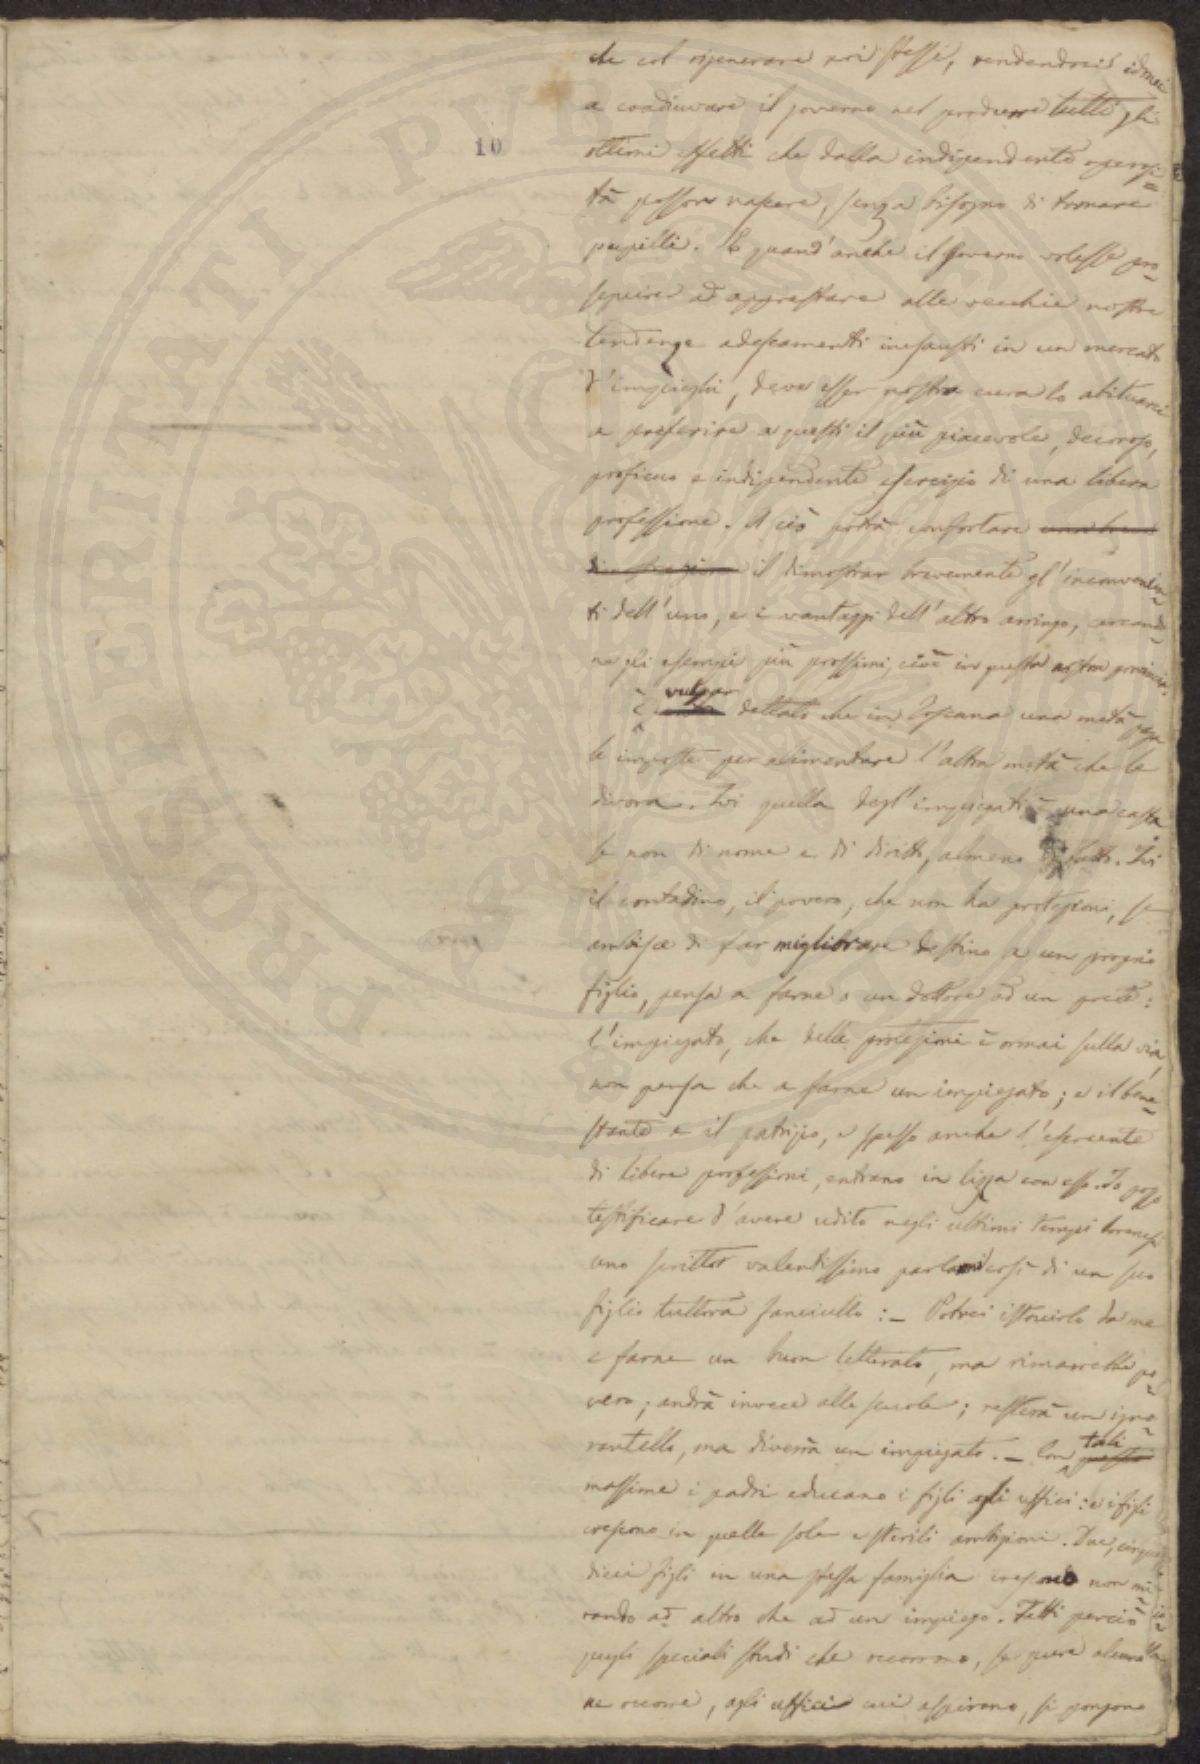 che col rigenerare noi stessi, rendendoci idonei
a coadiuvare il governo nel produrre tutti gli
10
ottimi effetti che dalla indipendente operosi=
tà possono nascere, senza bisogno di tornare
pupilli. E quand'anche il governo volesse pro=
seguire ad apprestare alle vecchie nostre
tendenze adescamenti inesausti in un mercato
d'impieghi, deve esser nostra cura lo abituarci
a preferire a questi il più piacevole, decoroso,
proficuo e indipendente esercizio di una libera
professione. A ciò potrà confortare
il dimostrar brevemente gl'inconvenien=
ti dell'uno, e i vantaggi dell'altro arringo, cercando=
ne gli esempi più prossimi, cioè in questa nostra provincia.
È vulgar dettato che in Toscana una metà paga
le imposte per alimentare l'altra metà che le
divora. Ivi quella degl'impiegati è una casta
se non di nome e di diritto, almeno di fatto. Ivi
il contadino, il povero, che non ha protezioni, se
ambisce di far migliorare destino a un proprio
figlio, pensa a farne o un dottore od un prete:
l'impiegato, che delle protezioni è ormai sulla via,
non pensa che a farne un impiegato; e il bene=
stante e il patrizio, e spesso anche l'esercente
di libere professioni, entrano in lizza con esso. Io posso
testificare d'avere udito negli ultimi tempi lorenesi
uno scrittor valentissimo parlarmi così di un suo
figlio tuttora fanciullo: – Potrei istruirlo da me
e farne un buon letterato, ma rimarrebbe po=
vero; andrà invece alle scuole; resterà un igno=
rantello, ma diverrà un impiegato. – Con tali questo
massime i padri educano i figli agli uffici: e i figli
crescono in quelle sole e sterili ambizioni. Due, cinque
dieci figli in una stessa famiglia crescono non mi=
rando ad altro che ad un impiego. Fatti perciò
quegli speciali studi che occorrono, se pure
ne occorre, agli uffici cui aspirano, si pongono